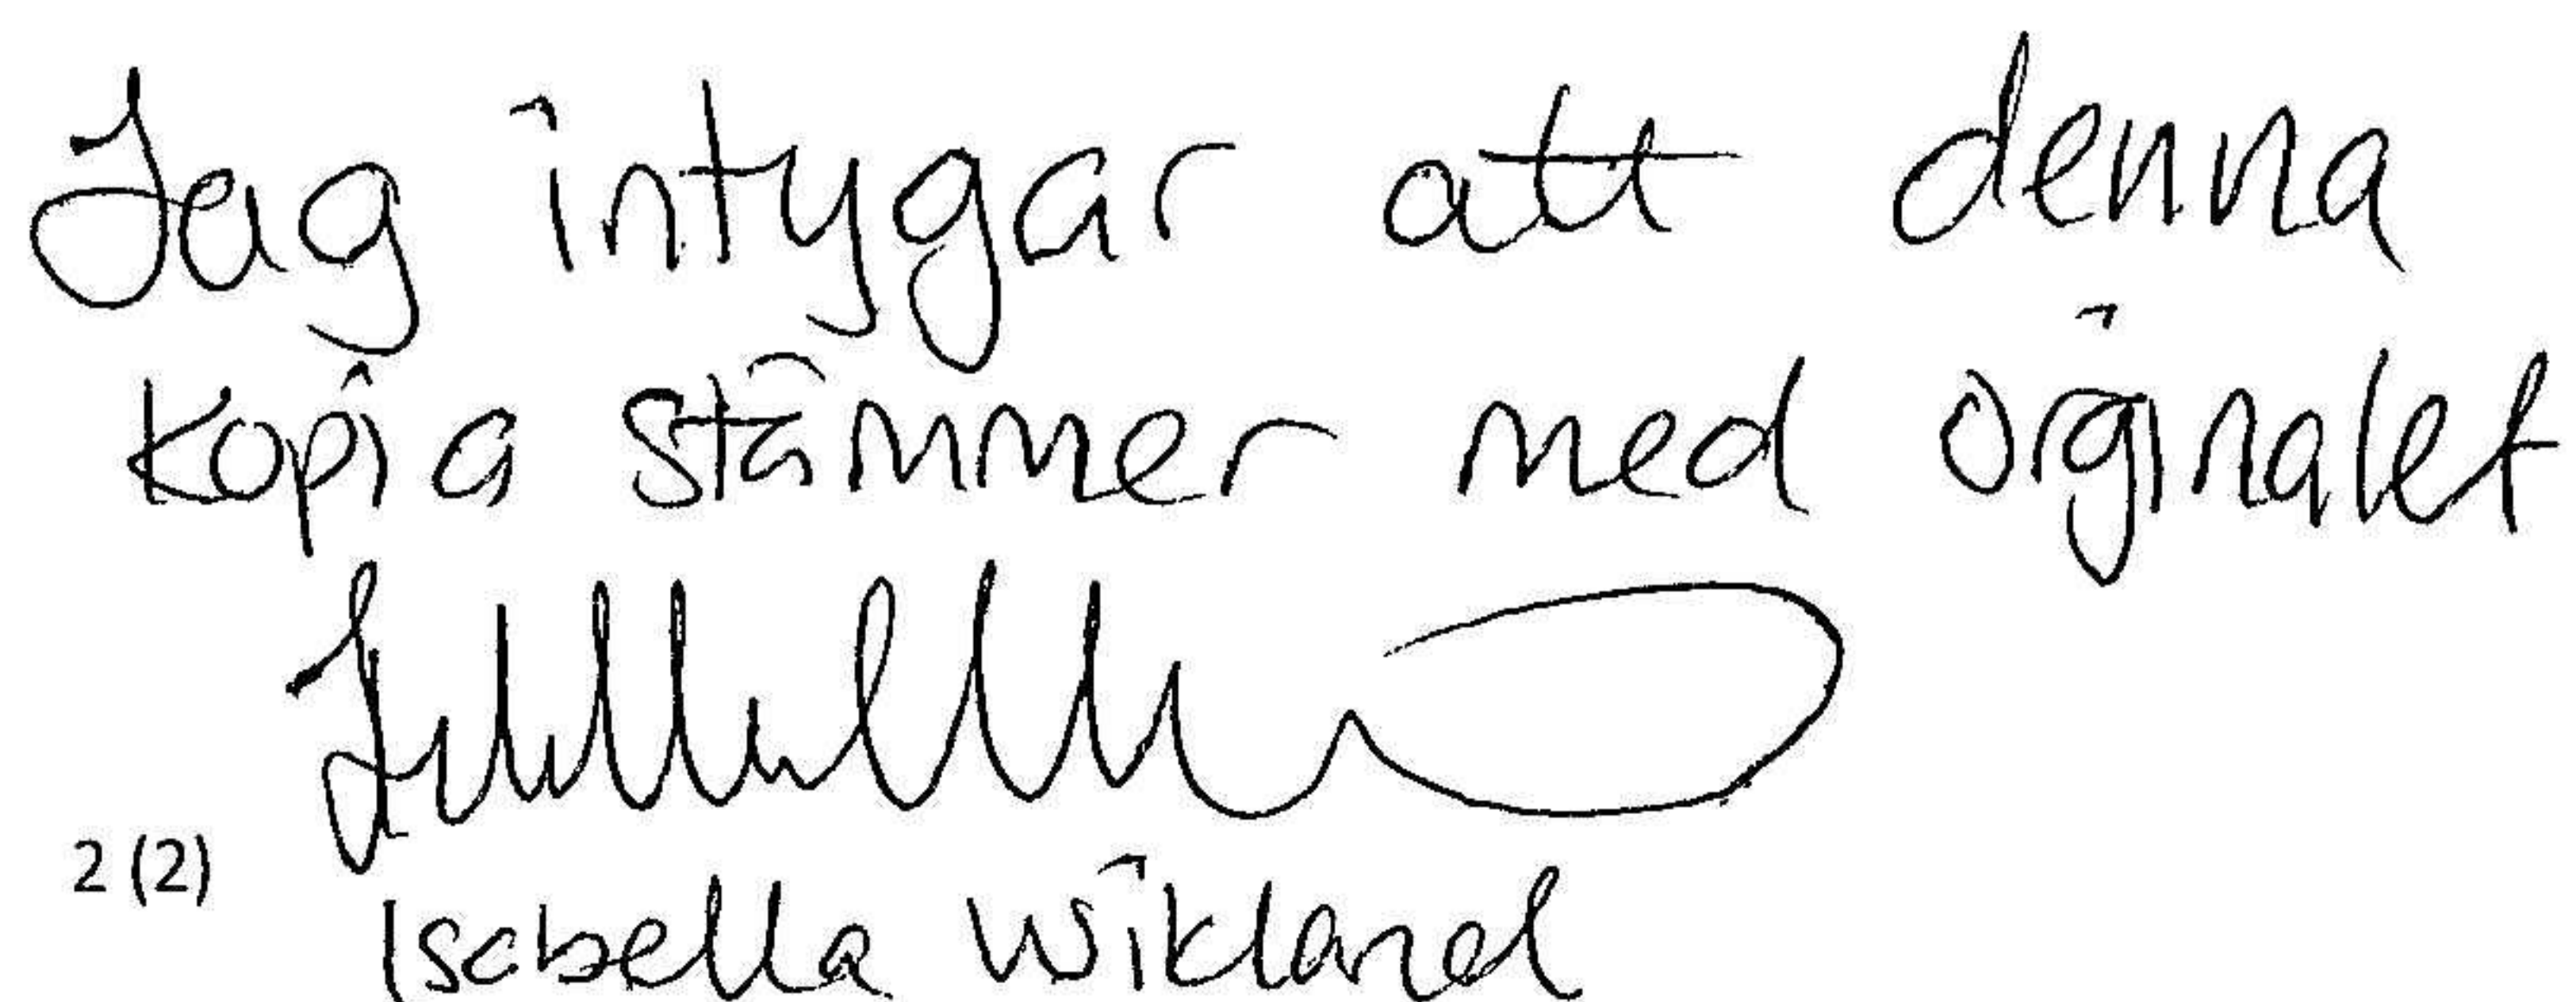 Jag intygar att denna
kopia stämmer med orginalet
2 (2)
Isabella Wikland